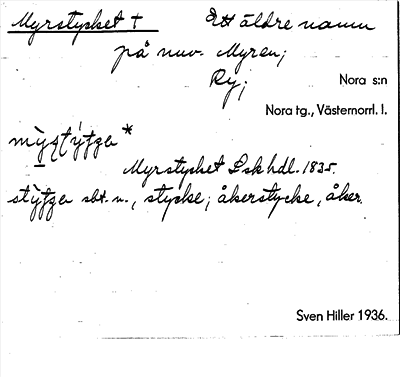 Myrstycket † Ett äldre namn
på nuv. Myren;
Ry; Nora s:n
Nora tg., Västernorrl. l.
Myrstycket Lskhdl. 1835.
sbt. n., stycke; åkerstycke, åker.
Sven Hiller 1936.